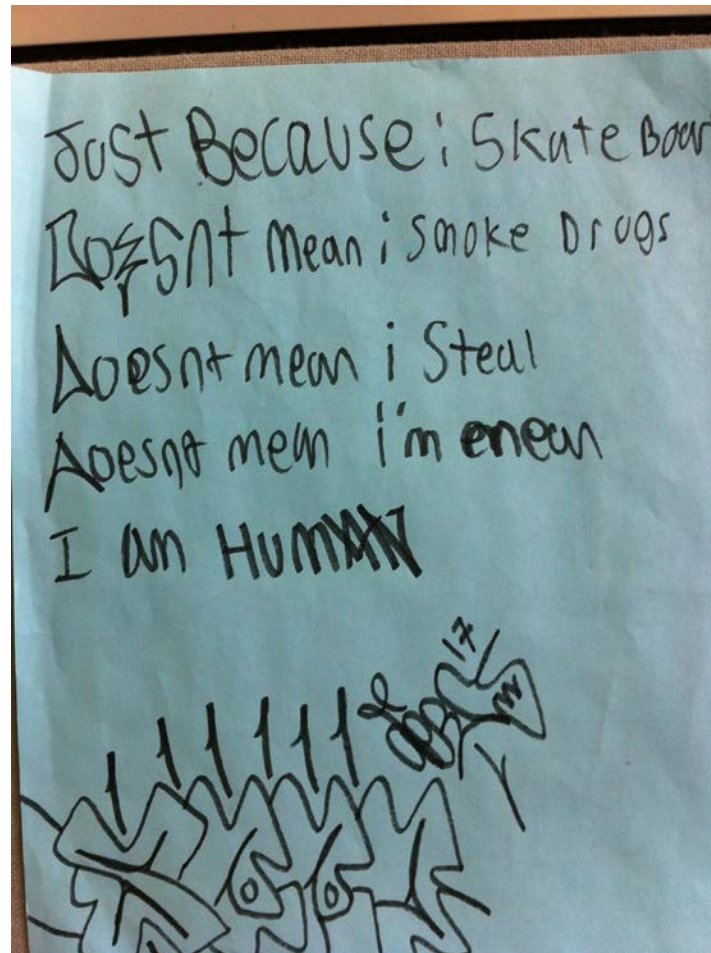 Just Because i Skate Boar
Doesnt mean i smoke Drugs
Doesnt mean i Steal
Doesnt mean i'm mean
I am HUMAN
17